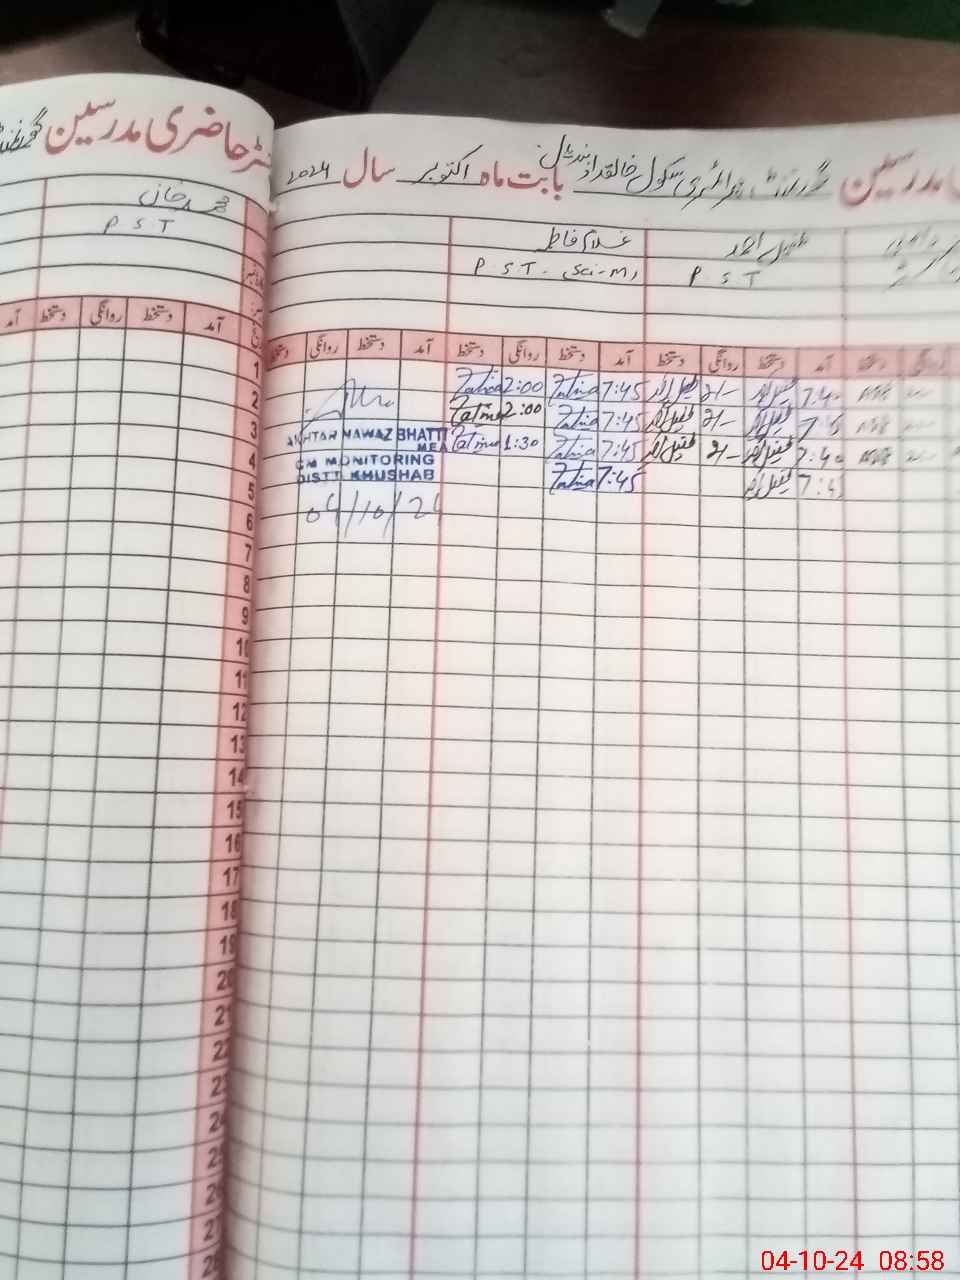 رجسٹر حاضری مدرسین
محمد خان
P S T
آمد دستخط روانگی دستخط آمد
مدرسین گورنمنٹ پرائمری سکول خالقداد بندیال بابت ماہ اکتوبر سال 2024
طفیل احمد غلام فاطمہ
P.S.T P.S.T. Sci-M
روانگی دستخط آمد دستخط روانگی دستخط آمد دستخط روانگی دستخط آمد دستخط روانگی دستخط
1 Fatima 2:00 Fatima 7:45 طفیل احمد 2/- طفیل احمد 7:40
2 Fatima 2:00 Fatima 7:45 طفیل احمد 2/- طفیل احمد
3 Fatima 1:30 Fatima 7:45 طفیل احمد 2/- طفیل احمد 7:40
4 Fatima 7:45 طفیل احمد
AKHTAR NAWAZ BHATTI
MEA
CM MONITORING
DISTT. KHUSHAB
04/10/24
5
6
7
8
9
10
11
12
13
14
15
16
17
18
19
20
21
22
23
04-10-24 08:58